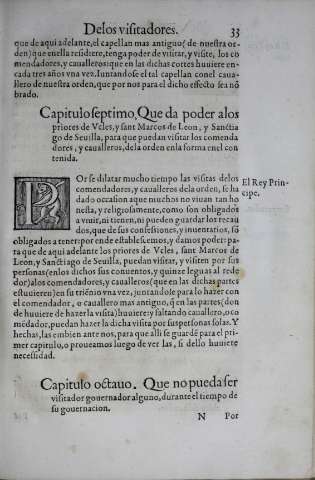 Delos visitadores. 33
que de aqui adelante, el capellan mas antiguo (de nuestra or
den) que en ella residiere, tenga poder de visitar, y visite, los co
mendadores, y caualleros: que en las dichas cortes huuiere en-
cada tres años vna vez. Iuntandose el tal capellan con el caua-
llero de nuestra orden, que por nos para el dicho effecto sea nō
brado.
Capitulo septimo, Que da poder alos
priores de Vcles, y sant Marcos de Leon, y Sanctia
go de Seuilla, para que puedan visitar los comenda
dores, y caualleros, dela orden en la forma enel con
tenida.
POr se dilatar mucho tiempo las visitas delos
comendadores, y caualleros dela orden, se ha
dado occasion aque muchos no viuan tan ho
nesta, y religiosamente, como son obligados
a viuir, ni tienen, ni pueden guardar los recau
dos, que de sus confessiones, y inuentarios, sō
obligados a tener: por ende establescemos, y damos poder: pa-
ra que de aqui adelante los priores de Vcles, sant Marcos de
Leon, y Sanctiago de Seuilla, puedan visitar, y visiten por sus
personas (en los dichos sus conuentos, y quinze leguas al rede
dor) alos comendadores, y caualleros (que en las dichas partes
estuuieren) en su triēnio vna vez, juntandose para lo hazer con
el comendador, o cauallero mas antiguo, q̄ en las partes (don
de huuiere de hazer la visita) huuiere: y faltando cauallero, o co
mēdador, puedan hazer la dicha visita por sus personas solas. Y
hechas, las embien ante nos, para que alli se guardē para el pri-
mer capitulo, o proueamos luego de ver las, si dello huuiere
necessidad.
El Rey Prin-
cipe.
Capitulo octauo. Que no pueda ser
visitador gouernador alguno, durante el tiempo de
su gouernacion.
N Por